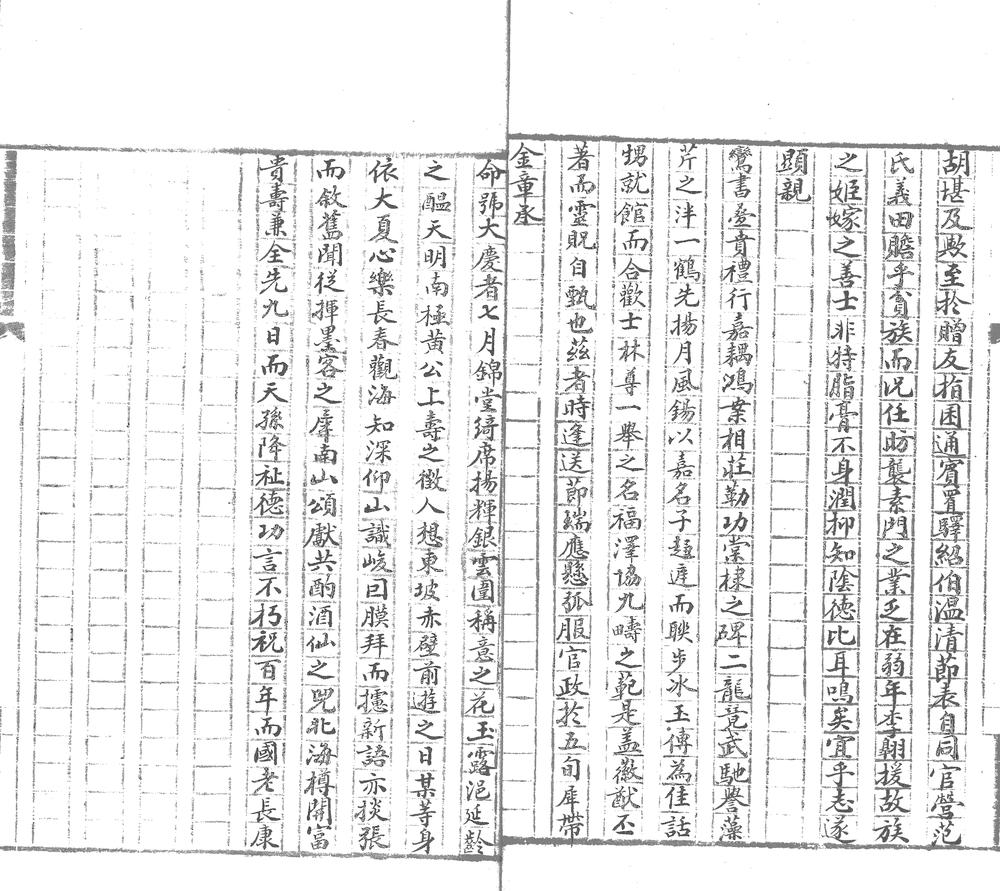 胡堪及歟至於贈友指囷通賓置驛紹伯溫清節表自同官營范
氏義田贍乎貧族而況任昉襲素門之業乏在弱年李翱援故族
之姬嫁之善士非特脂膏不身潤抑知陰德比耳鳴矣宜乎志遂
顯親
鸞書叠賁禮行嘉耦鴻案相莊勒功棠棣之碑二龍竟武馳譽藻
芹之泮一鶴先揚月風錫以嘉名子趨遲而聯步冰玉傳為佳話
甥就館而合歡士林尊一舉之名福澤協九疇之範是蓋徽猷丕
著而靈貺自甄也茲者時逢送節端應懸弧服官政於五旬犀帶
金章承
命號大慶者七月錦堂綺席揚輝銀雲圍稱意之花玉露浥延齡
之醞天明南極黃公上壽之徵人想東坡赤壁前遊之日某等身
依大夏心樂長春觀海知深仰山識峻因膜拜而攄新語亦掞張
而敘舊聞從揮墨客之屏南山頌獻共酌酒仙之兕北海樽開富
貴壽兼全先九日而天孫降祉德功言不朽祝百年而國老長康